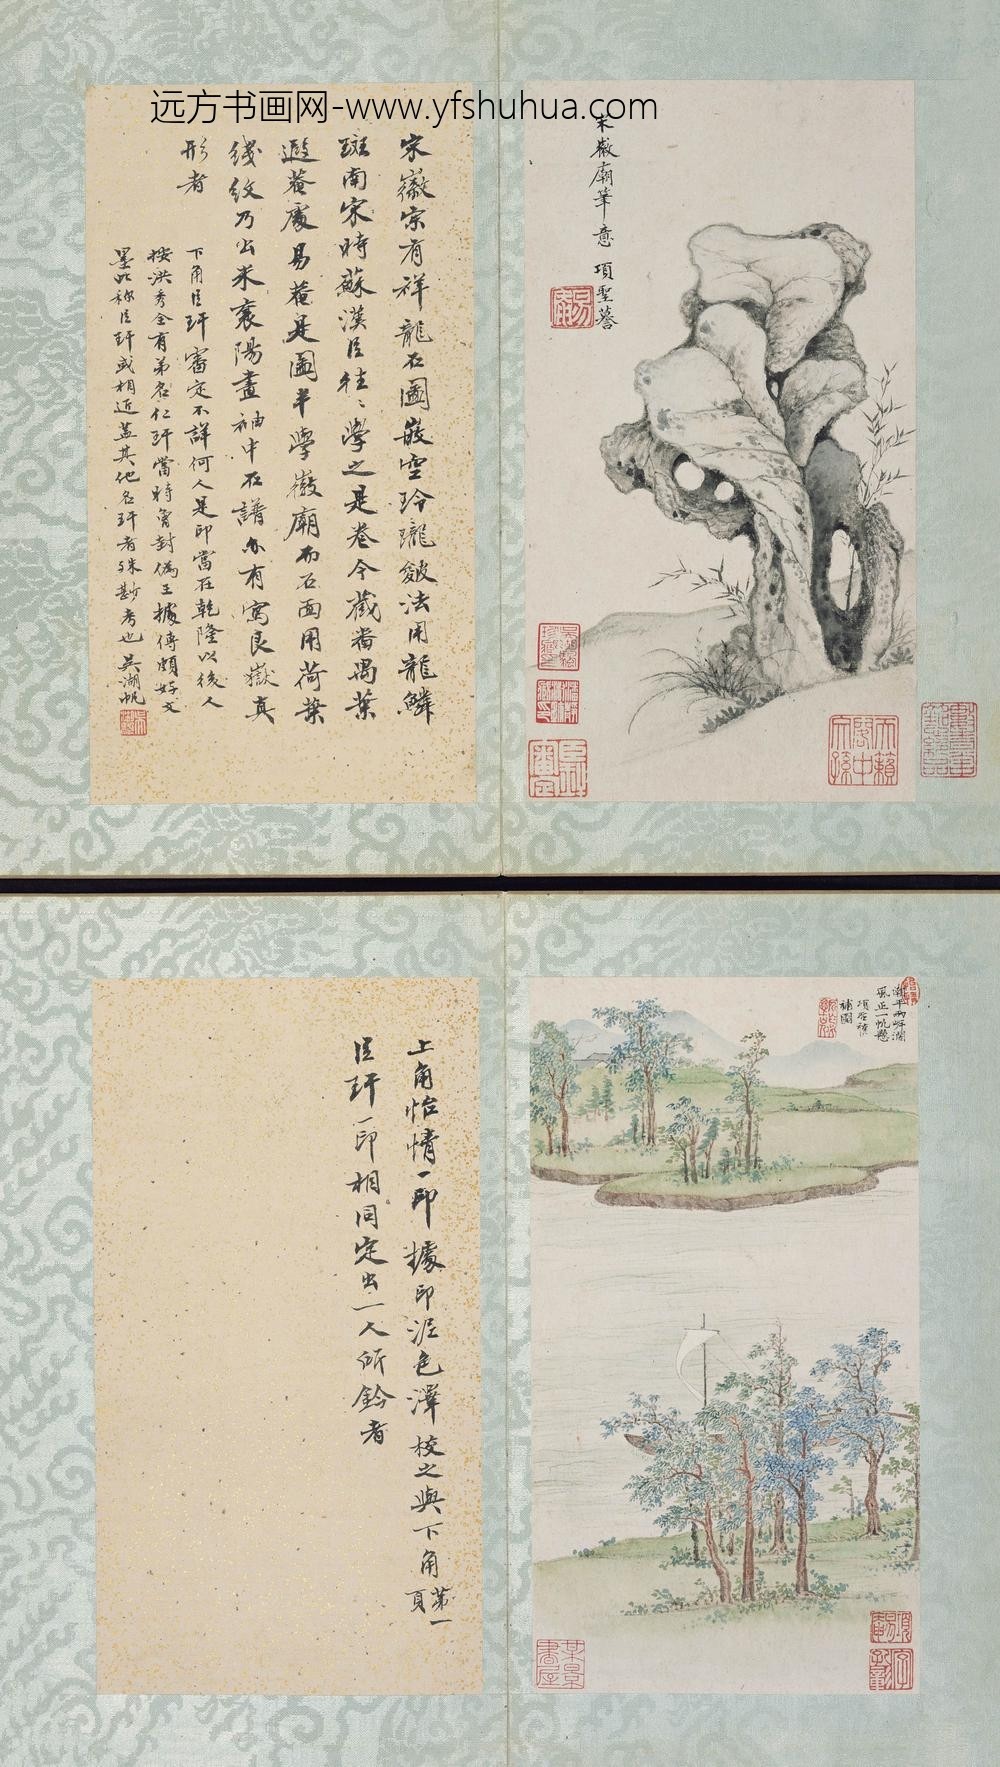 远方书画网-www.yfshuhua.com
宋徽廟筆意 項聖謩
宋徽宗有祥龍石圖嵌空玲瓏皴法用龍鱗
斑南宋時蘇漢臣往〻學之是卷今藏番禺葉
遐菴處易菴是圖半學徽廟而石面用荷葉
綫紋乃公米襄陽畫袖中石譜亦有寫艮嶽真
形者
下角臣玕審定不詳何人是印當在乾隆以後人
按洪秀全有弟名仁玕當時曾封偽王據傳頗好文
墨此稱臣玕或相近蓋其他名玕者殊尠考也 吳湖帆
潮平兩岸濶
風正一帆懸
項聖謩
補圖
上角怡情一印據印泥色澤校之與下角第一頁
臣玕一印相同定出一人所鈐者